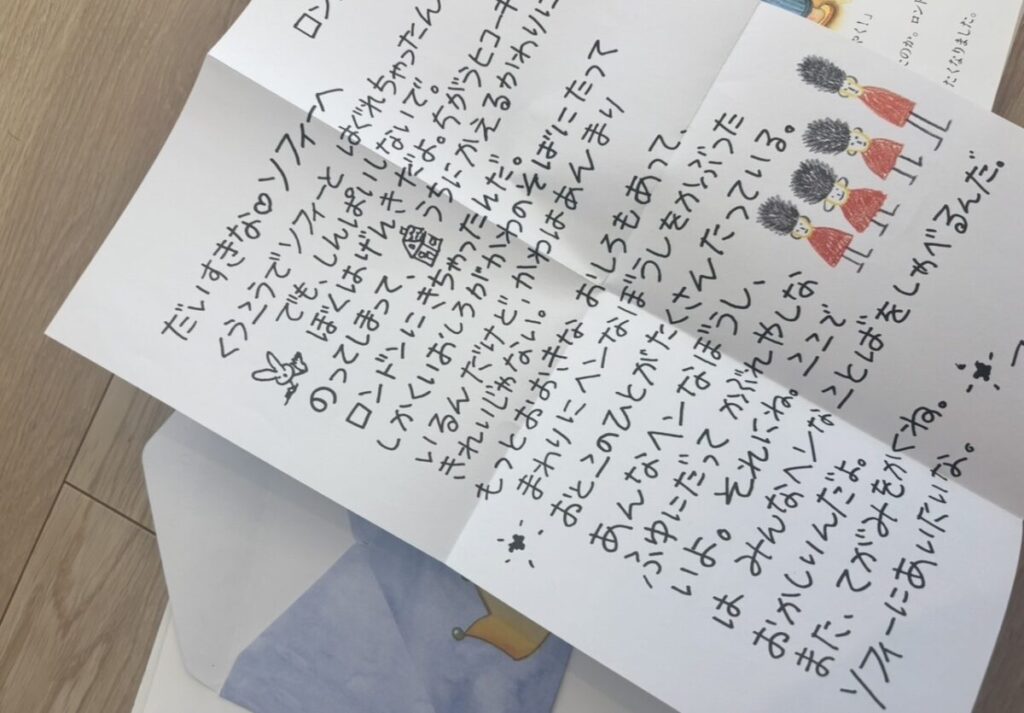 ロン
だいすきな♡ソフィーへ
くうこうでソフィーと はぐれちゃったん
でも、しんぱいしないで。
ぼくはげんきだよ。ちがうヒコーキ
のってしまって、うちにかえるかわりに
ロンドンにきちゃったんだ。
しかくいおしろがかわのそばにたって
いるんだけど、かわはあんまり
きれいじゃない。
もっとおおきな おしろもあって、
まわりにヘンなぼうしをかぶった
おとこのひとがたくさんたっている。
あんなヘンなぼうし、
ふゆにだって かぶれやしな
いよ。それにね。ここで
は みんなヘンなことばをしゃべるんだ。
おかしいんだよ。
また、てがみをかくね。
ソフィーにあいたいな。
やく!」
のか。ロンド
たくなりました。